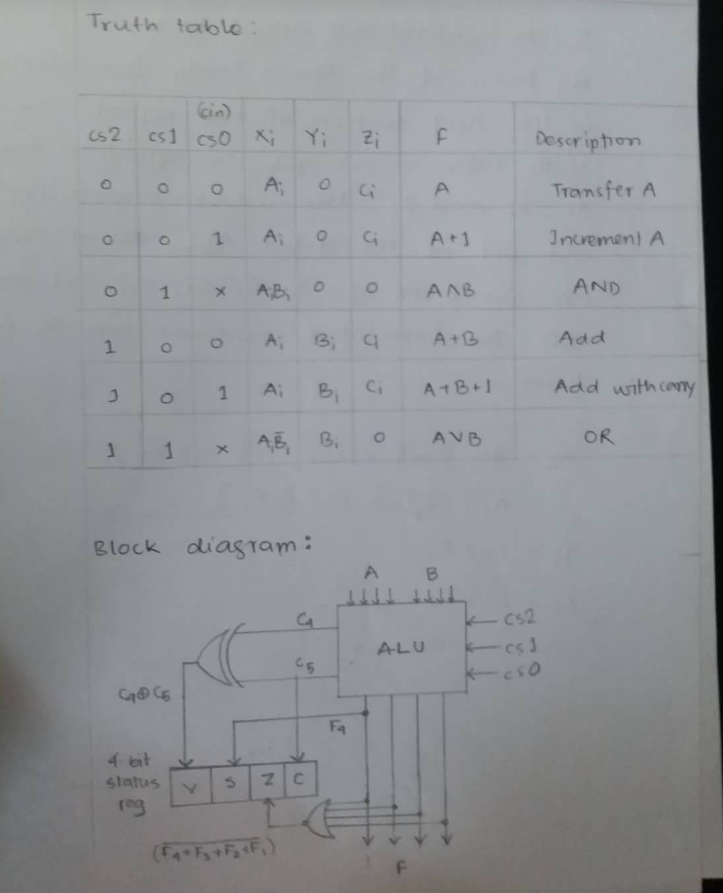 Truth table:
(cin)
cs2 cs1 cs0 Xi Yi Zi F Description
0 0 0 Ai 0 Ci A Transfer A
0 0 1 Ai 0 Ci A+1 Increment A
0 1 x AiBi 0 0 A∧B AND
1 0 0 Ai Bi Ci A+B Add
1 0 1 Ai Bi Ci A+B+1 Add with carry
1 1 x AiB̅i Bi 0 A∨B OR
Block diagram:
A B
C4 ALU cs2
C5 cs1
cs0
C4⊕C5
F4
4-bit
status
reg
V S Z C
(F̅4̅+̅F̅3̅+̅F̅2̅+̅F̅1̅)
F